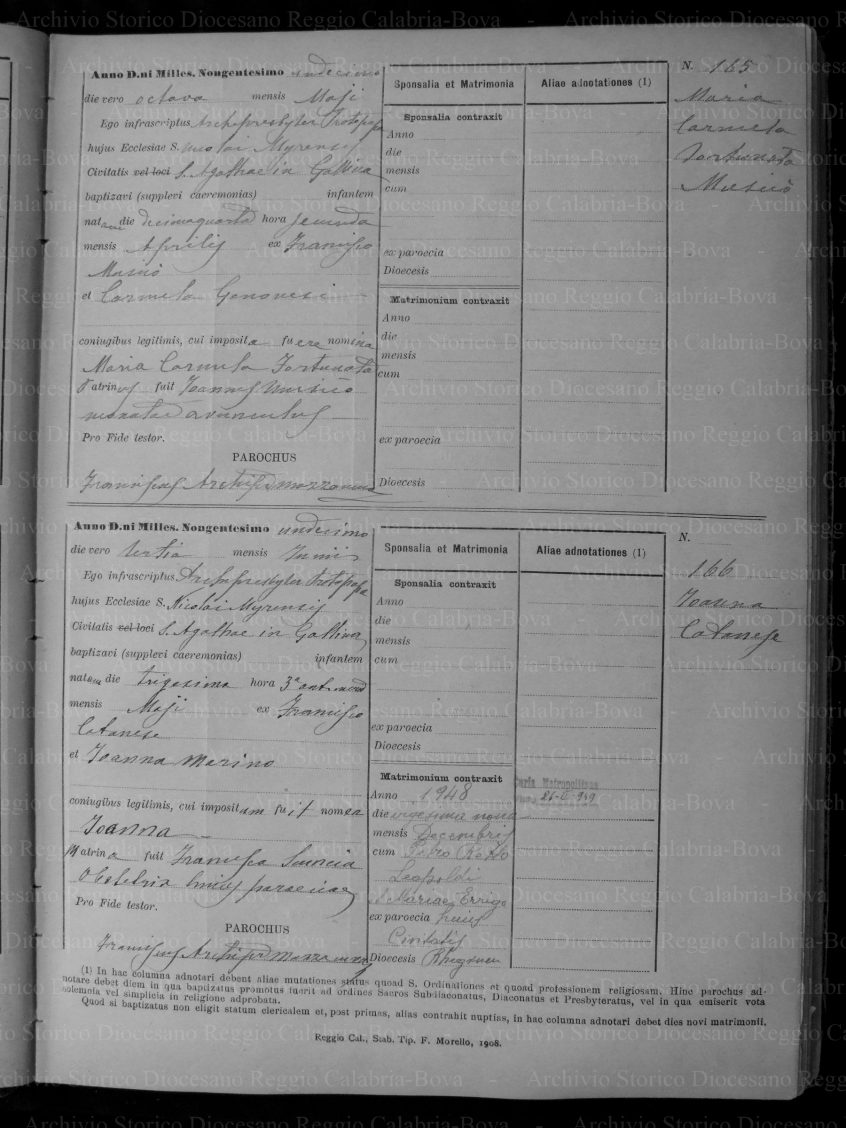 Anno D.ni Milles. Nongentesimo undecimo
die vero octava mensis Maji
Ego infrascriptus Archipresbyter Protopapa
hujus Ecclesiae S. Nicolai Myrensis
Civitatis vel loci S. Agathae in Gallina
baptizavi (supplevi caeremonias) infantem
natam die decimaquarta hora secunda
mensis Aprilis ex Francisco
Musicò
et Carmela Genovesi
coniugibus legitimis, cui imposita fuere nomina
Maria Carmela Fortunata
Patrinus fuit Joannes Musicò
neonatae avunculus
Pro Fide testor.
PAROCHUS
Franciscus Archipr. Mazzacuva
Sponsalia et Matrimonia
Sponsalia contraxit
Anno
die
mensis
cum
ex paroecia
Dioecesis
Matrimonium contraxit
Anno
die
mensis
cum
ex paroecia
Dioecesis
Aliae adnotationes (1)
N. 165
Maria
Carmela
Fortunata
Musicò
Anno D.ni Milles. Nongentesimo undecimo
die vero tertia mensis Junii
Ego infrascriptus Archipresbyter Protopapa
hujus Ecclesiae S. Nicolai Myrensis
Civitatis vel loci S. Agathae in Gallina
baptizavi (supplevi caeremonias) infantem
natam die trigesima hora 3ª
mensis Maji ex Francisco
Catanese
et Joanna Marino
coniugibus legitimis, cui impositam fuit nomen
Joanna
Matrina fuit Francisca
Obstetrix hujus paroeciae
Pro Fide testor.
PAROCHUS
Franciscus Archipr. Mazzacuva
Sponsalia et Matrimonia
Sponsalia contraxit
Anno
die
mensis
cum
ex paroecia
Dioecesis
Matrimonium contraxit
Anno 1948
die vigesima nona
mensis Decembris
cum Petro
Leopoldi
S. Mariae Errigo
ex paroecia huius
Civitatis
Dioecesis Rheginen
Aliae adnotationes (1)
Curia Metropolitana
N.
166
Joanna
Catanese
(1) In hac columna adnotari debent aliae mutationes status quoad S. Ordinationes et quoad professionem religiosam. Hinc parochus ad-
notare debet diem in qua baptizatus promotus fuerit ad ordines Sacros Subdiaconatus, Diaconatus et Presbyteratus, vel in qua emiserit vota
solemnia vel simplicia in religione adprobata.
Quod si baptizatus non eligit statum clericalem et, post primas, alias contrahit nuptias, in hac columna adnotari debet dies novi matrimonii.
Reggio Cal., Stab. Tip. F. Morello, 1908.
Archivio Storico Diocesano Reggio Calabria-Bova